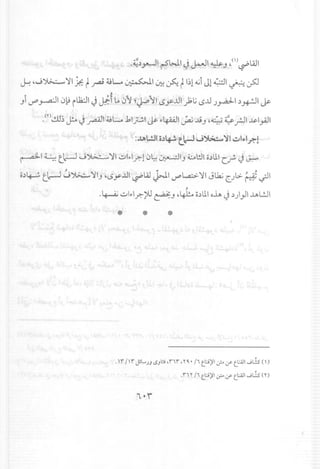 القاضي(١)، وعليه العمل في المحاكم السعودية.
لكن ينبغي التنبه إلى أنه إذا لم يكن بين المحكمتين مسافة قصر لم يجز الاستخلاف، بل
على الشهود الحضور لدى ناظر الدعوى الأصلي؛ لأن ما أُجمل في النظام فإن النصوص أو
القواعد الشرعية تبينه، وقد نص الفقهاء على اشتراط مسافة القصر في مثل ذلك(٢).
إجراءات الاستخلاف لسماع شهادة الشاهد:
سبق في شرح المادة الثامنة والتسعين بيان إجراءات الاستخلاف لسماع بينة الخصم
التي تقيم خارج نطاق الاختصاص المحلي لقاضي الدعوى، والاستخلاف لسماع شهادة
الشاهد الوارد في هذه المادة مثلها، ويخضع للإجراءات نفسها.
* * *
(١) كشاف القناع عن متن الإقناع ٦/ ٢٩٠، ٣٦٣، فتاوى ورسائل ١٣/ ١٣.
(٢) كشاف القناع عن متن الإقناع ٦/ ٣٦٢.
٦٠٣